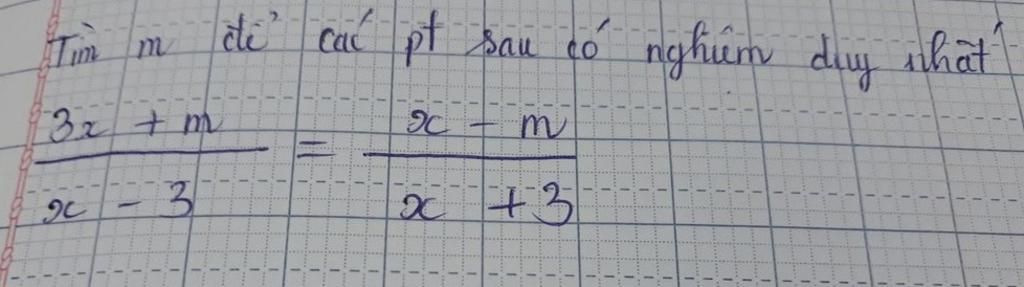 Tìm m để các pt sau có nghiệm duy nhất
3x + m / x - 3 = x - m / x + 3